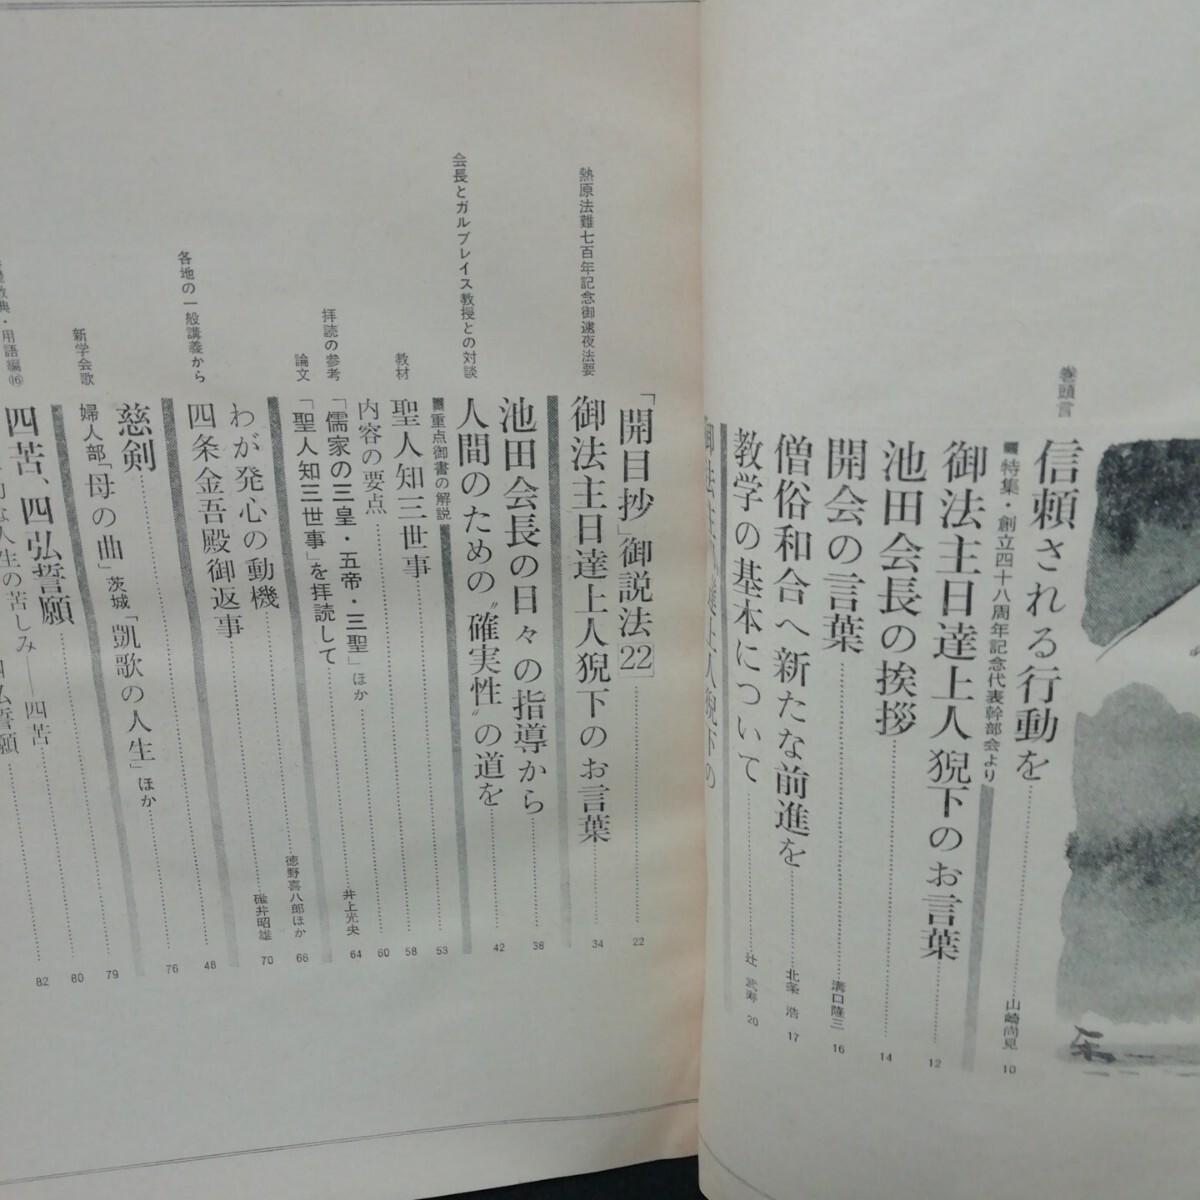 巻頭言
信頼される行動を 山崎尚見 10
■特集・創立四十八周年記念代表幹部会より
御法主日達上人猊下のお言葉 12
池田会長の挨拶 14
開会の言葉 溝口隆三 16
僧俗和合へ新たな前進を 北条 浩 17
教学の基本について 辻 武寿 20
「開目抄」御説法22 22
熱原法難七百年記念御逮夜法要
御法主日達上人猊下のお言葉 34
池田会長の日々の指導から 38
会長とガルブレイス教授との対談
人間のための〝確実性〟の道を 42
■重点御書の解説 53
教材
聖人知三世事 58
内容の要点 60
拝読の参考
「儒家の三皇・五帝・三聖」ほか 井上光央 64
論文
「聖人知三世事」を拝読して 徳野喜八郎ほか 66
わが発心の動機 碓井昭雄 70
各地の一般講義から
四条金吾殿御返事 48
慈剣 76
新学会歌
婦人部「母の曲」茨城「凱歌の人生」ほか 79
教典・用語編⑯
四苦、四弘誓願 80
な人生の苦しみ――四苦 82
弘誓願